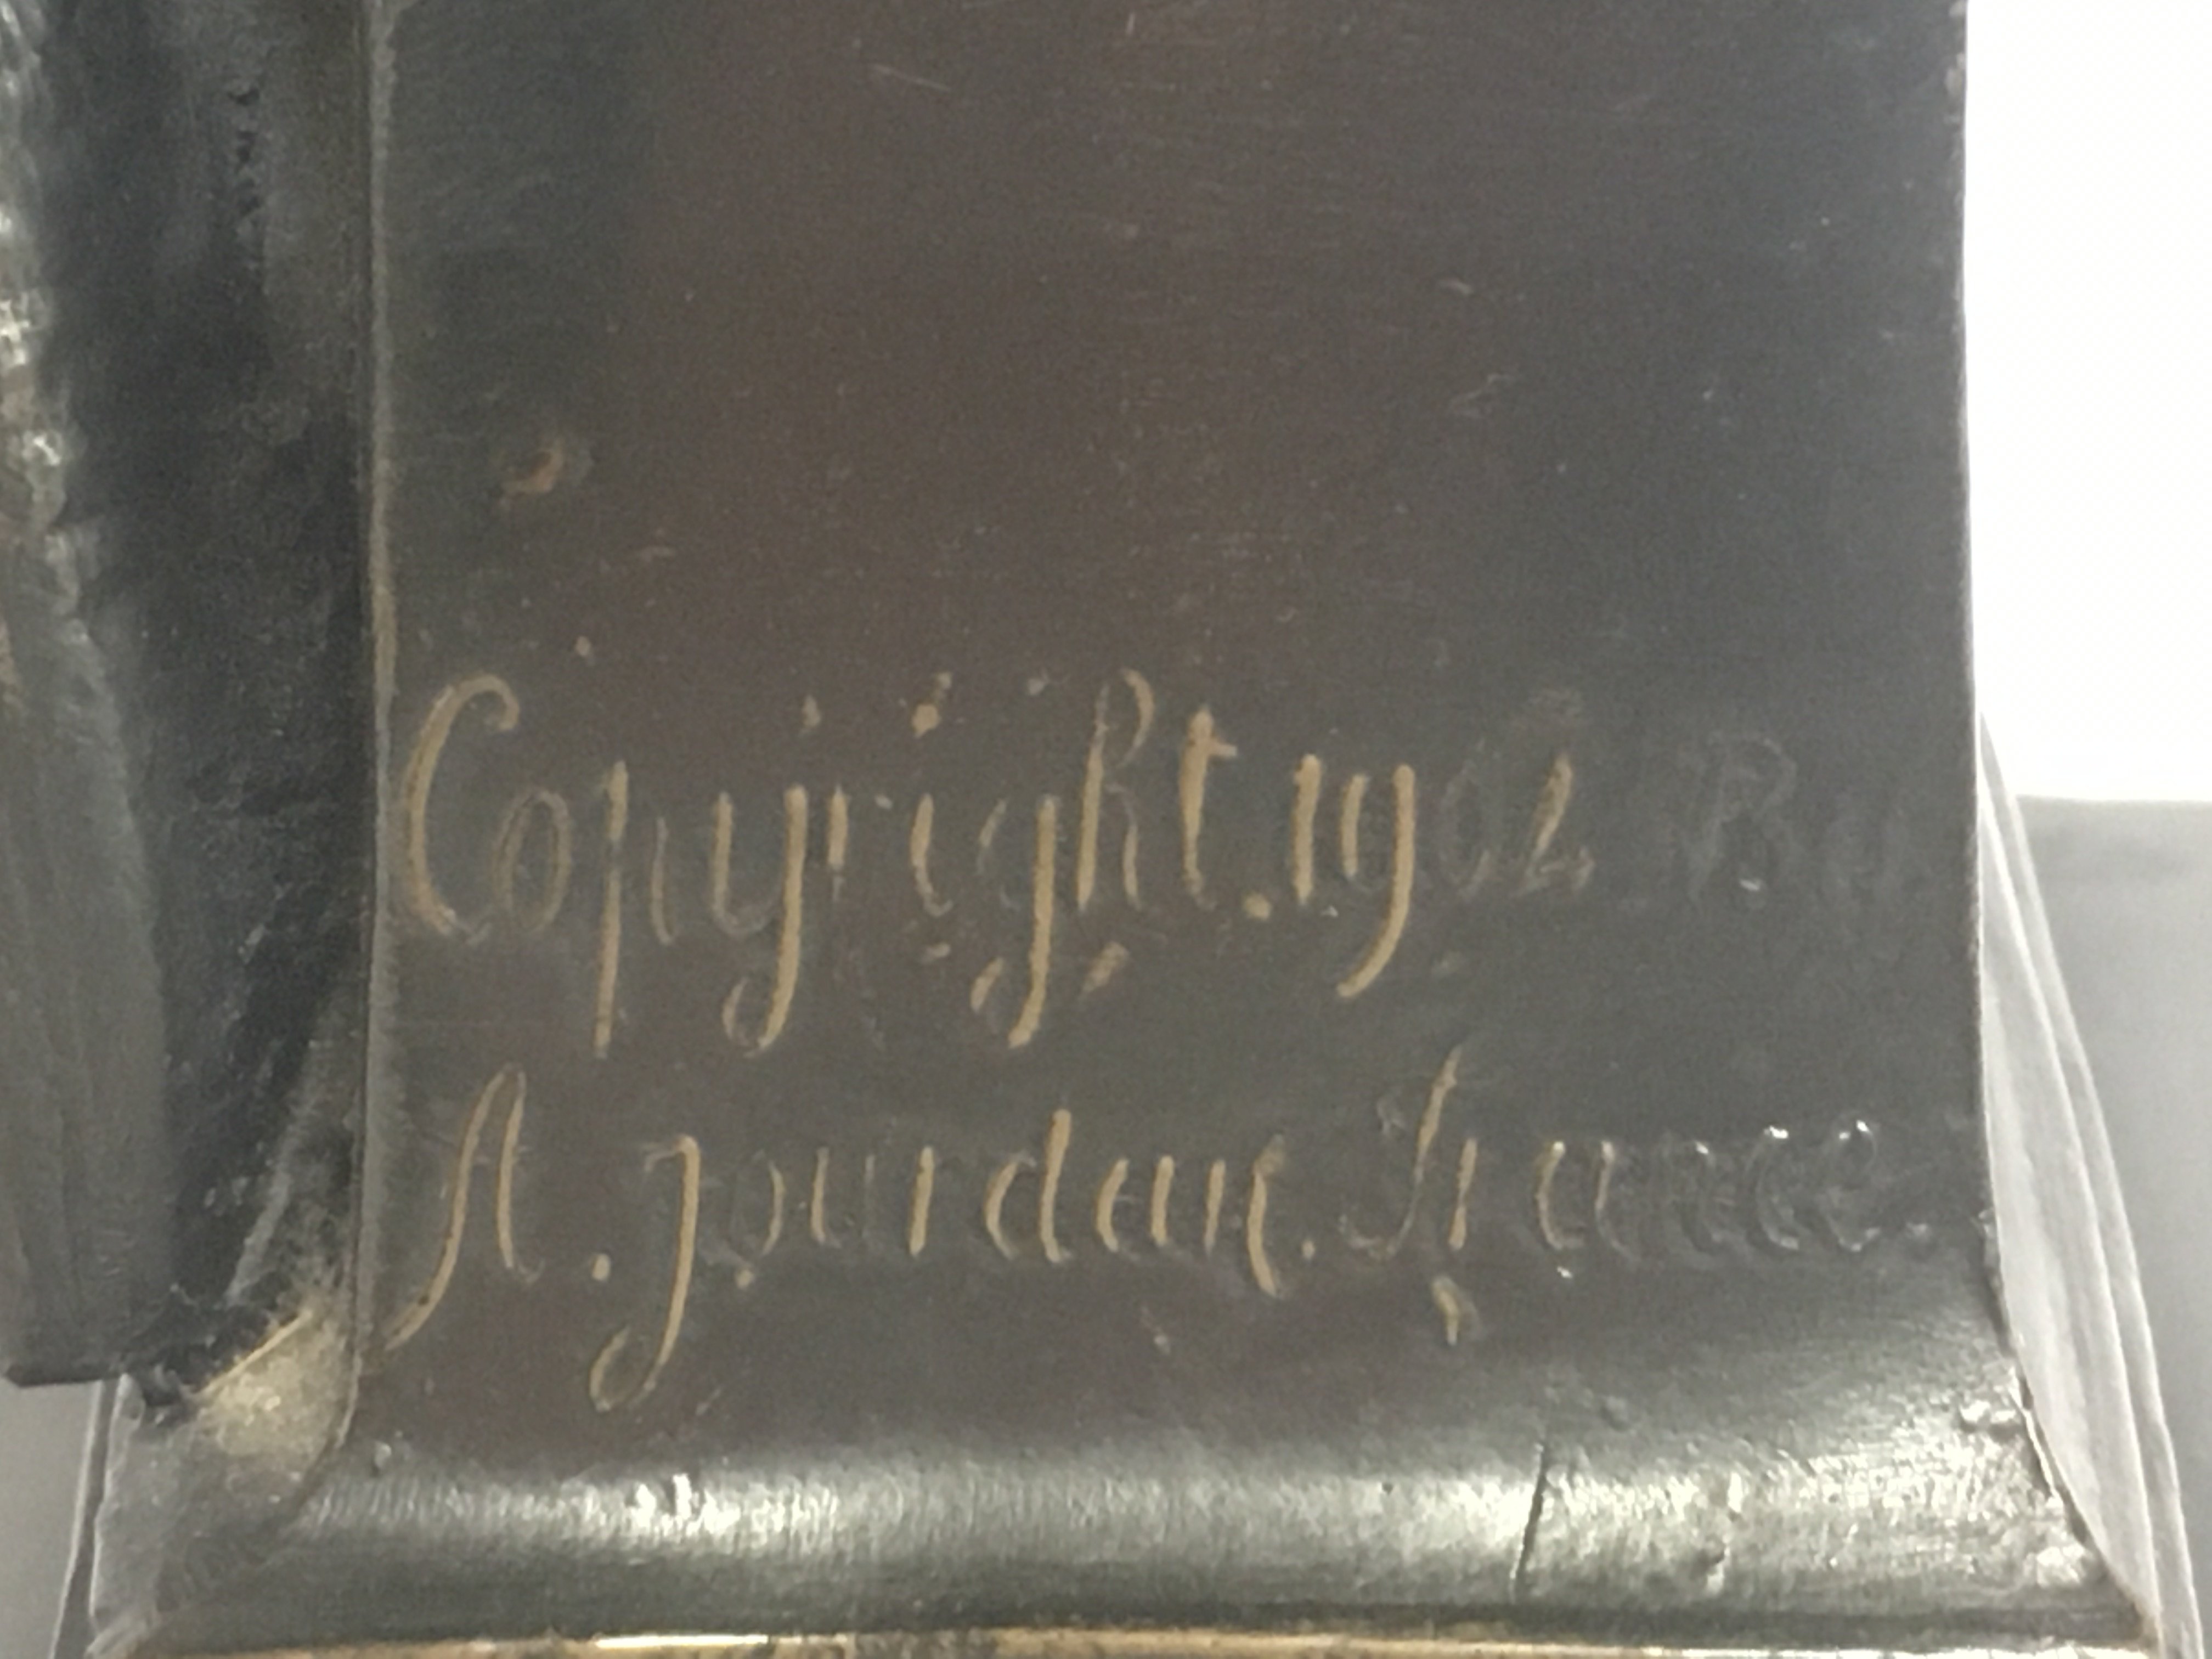 Copyright. 1902 By
A. Jourdan. France.